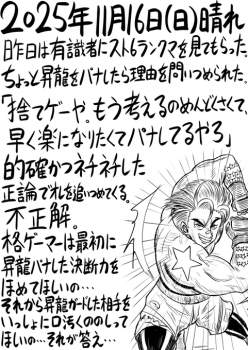 2025年11月16日(日)晴れ
昨日は有識者にスト6ランクマを見てもらった。
ちょっと昇龍をパナしたら理由を問いつめられた。
「捨てゲーや。もう考えるのめんどさくて、
早く楽になりたくてパナしてるやろ」
的確かつネチネチした
正論でれを追いつめてくる。
不正解。
格ゲーマーは最初に
昇龍パナした決断力を
ほめてほしいの…
それから昇龍ガードした相手を
いっしょに口汚くののしって
ほしいの…それが答え…